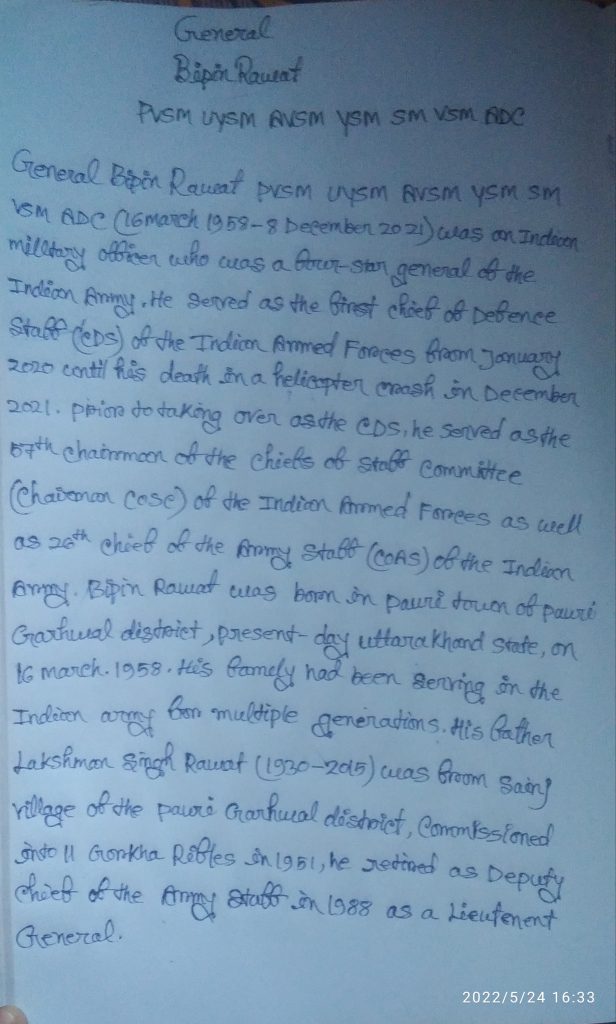 General
Bipin Rawat
PVSM UYSM AVSM YSM SM VSM ADC
General Bipin Rawat PVSM UYSM AVSM YSM SM
VSM ADC (16 march 1958-8 December 2021) was an Indian
military officer who was a four-star general of the
Indian Army. He served as the first chief of Defence
Staff (CDS) of the Indian Armed Forces from January
2020 until his death in a helicopter crash in December
2021. prior to taking over as the CDS, he served as the
57th chairman of the chiefs of staff committee
(chairman COSC) of the Indian Armed Forces as well
as 26th chief of the Army Staff (COAS) of the Indian
Army. Bipin Rawat was born in pauri town of pauri
Garhwal district, present-day uttarakhand state, on
16 march. 1958. His family had been serving in the
Indian army for multiple generations. His father
Lakshman Singh Rawat (1930-2015) was from Sainj
village of the pauri Garhwal district, Commissioned
into 11 Gorkha Rifles in 1951, he retired as Deputy
chief of the Army Staff in 1988 as a Lieutenent
General.
2022/5/24 16:33